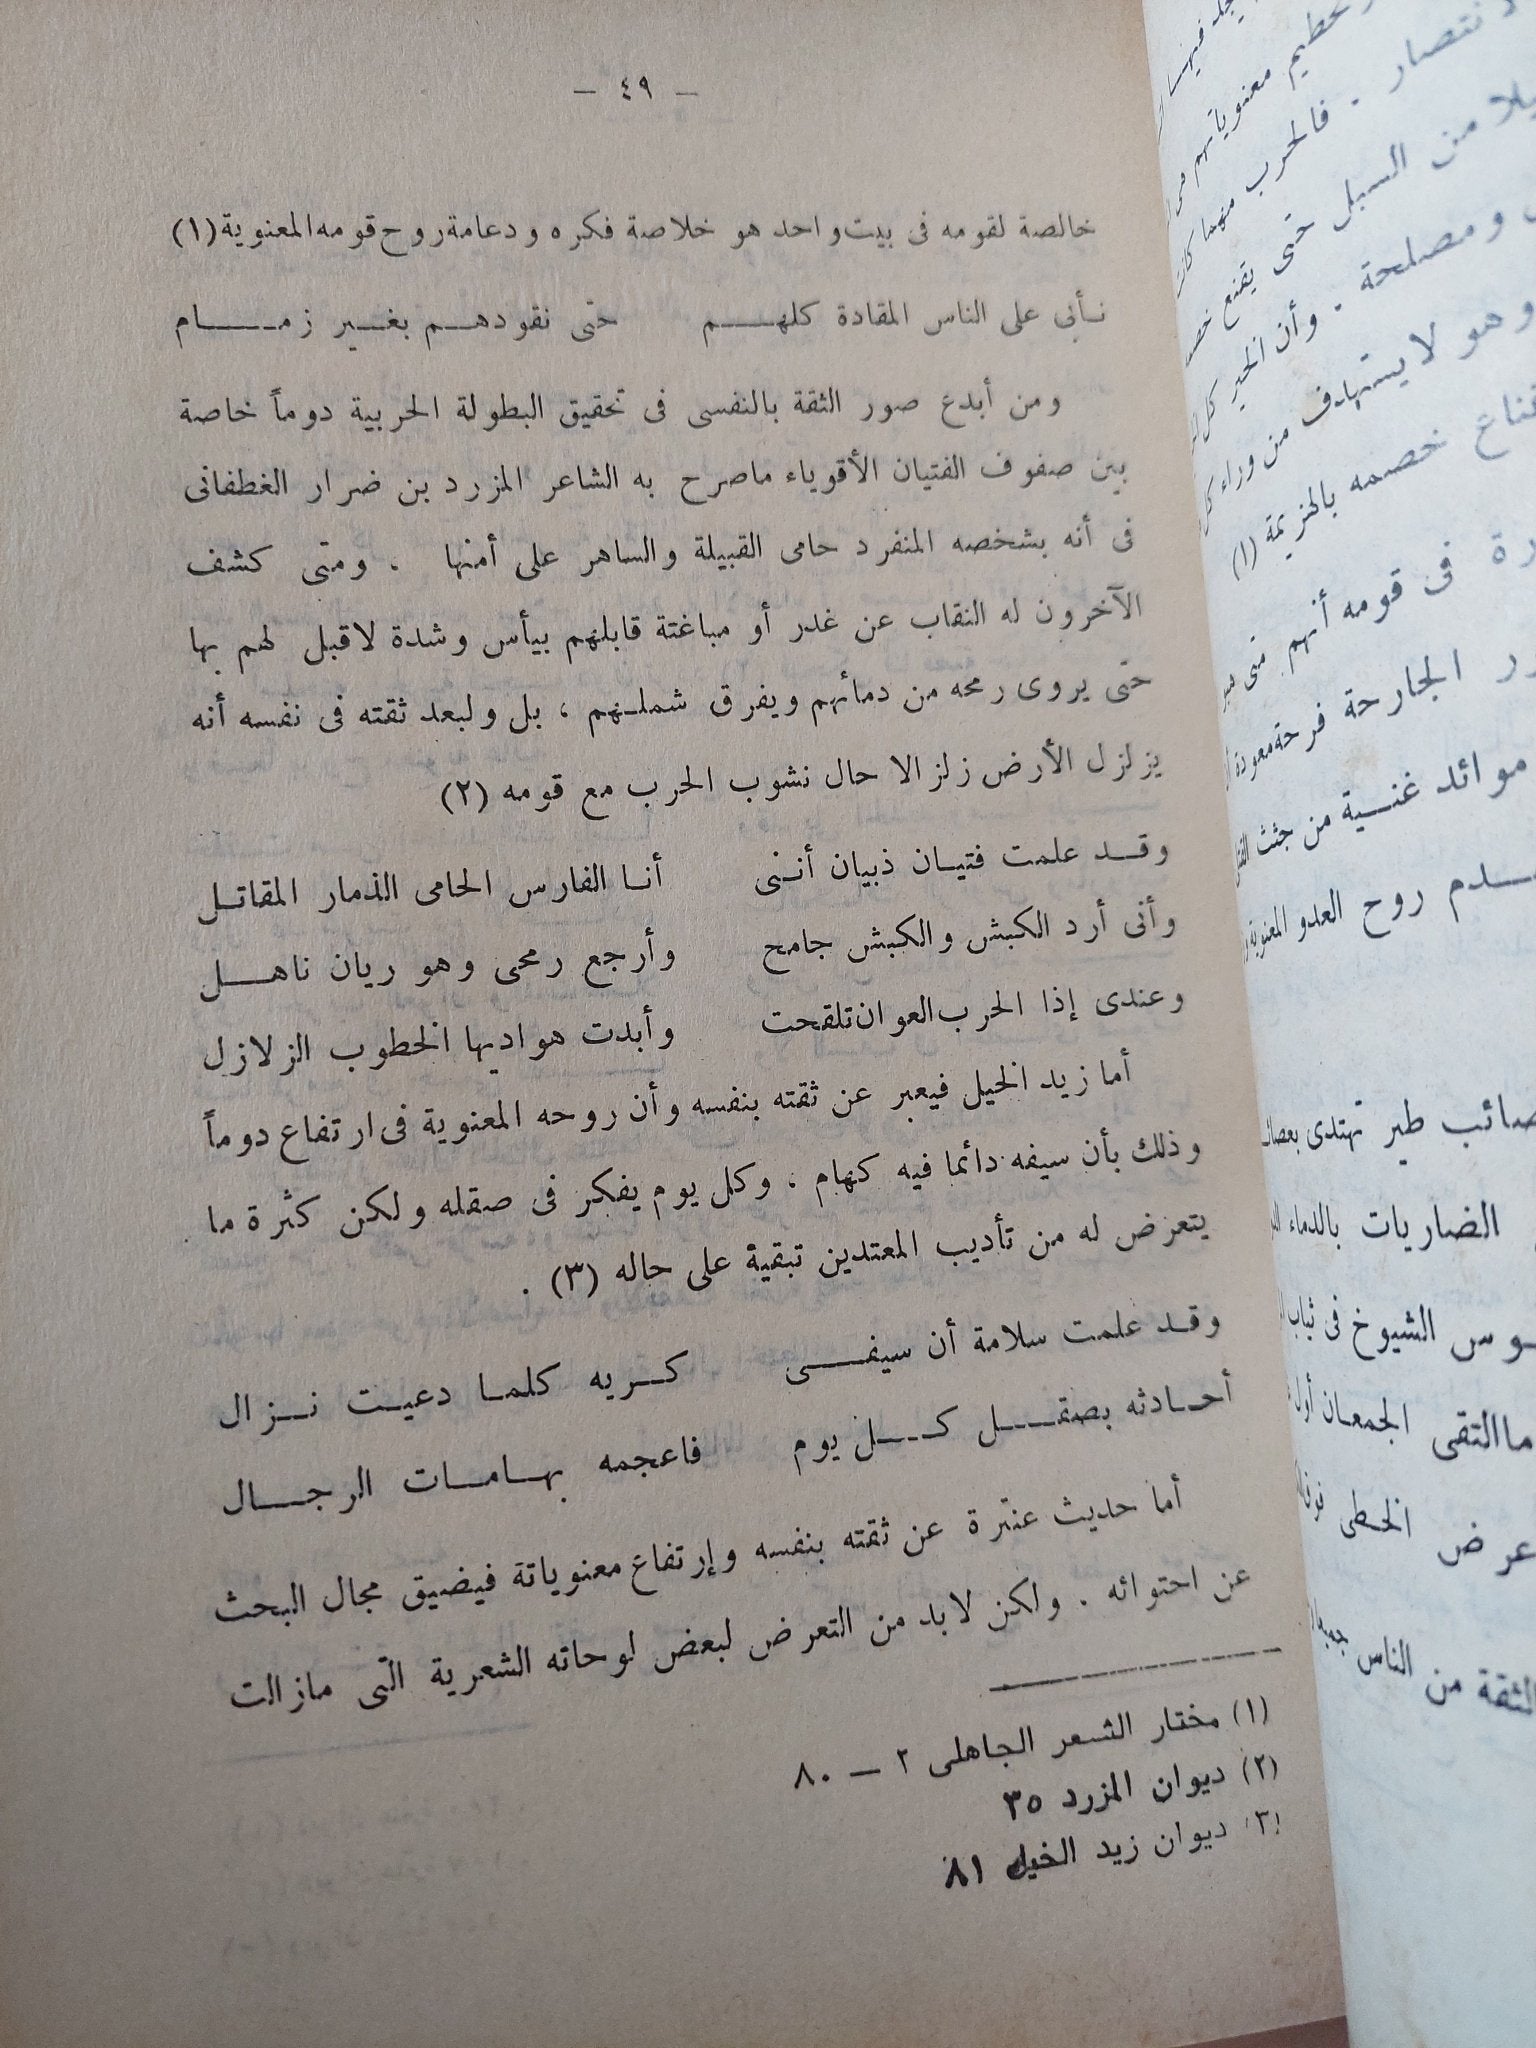 — ٤٩ —
خالصة لقومه فى بيت واحد هو خلاصة فكره ودعامة روح قومه المعنوية (١)
نـأبى على الناس المقادة كلهـــــم حتى نقودهـــم بغـــير زمــــــام
ومن أبدع صور الثقة بالنفسى فى تحقيق البطولة الحربية دوماً خاصة
بين صفوف الفتيان الأقوياء ماصرح به الشاعر المزرد بن ضرار الغطفانى
فى أنه بشخصه المنفرد حامى القبيلة والساهر على أمنها . ومتى كشف
الآخرون له النقاب عن غدر أو مباغتة قابلهم بيأس وشدة لاقبل لهم بها
حتى يروى رمحه من دمائهم ويفرق شملـهم ، بل ولبعد ثقته فى نفسه أنه
يزلزل الأرض زلزالا حال نشوب الحرب مع قومه (٢)
وقــد علمت فتيـان ذبيان أنـنى أنـا الفارس الحامى الذمار المقاتـل
وأنى أرد الكبش والكبش جامح وأرجع رمحى وهو ريان ناهــــل
وعندى إذا الحرب العوان تلقحت وأبدت هواديها الخطوب الزلازل
أما زيد الخيل فيعبر عن ثقته بنفسه وأن روحه المعنوية فى ارتفاع دوماً
وذلك بأن سيفه دائما فيه كهام . وكل يوم يفكر فى صقله ولكن كثرة ما
يتعرض له من تأديب المعتدين تبقية على حاله (٣) .
وقـد علمت سلامة أن سيفــــى كـريه كلمـا دعيـت نــزال
أحـادثه بصقــــل كـــل يوم فاعجمه بهـامـات الرجــــال
أما حديث عنترة عن ثقته بنفسه وإرتفاع معنوياتة فيضيق مجال البحث
عن احتوائه . ولكن لابد من التعرض لبعض لوحاته الشعرية التى مازالت
(١) مختار الشعر الجاهلى ٢ — ٨٠
(٢) ديوان المزرد ٣٥
(٣) ديوان زيد الخيل ٨١
تحطيم معنوياتهم
انتصار . فالحرب منهما
من السبل حتى يقنع
ومصلحة . وأن الخير
وهو لا يستهدف من وراء
خصمه بالهزيمة (١)
فى قومه أنهم متى
الجارحة فرحة معودة
موائد غنـية من جثث
روح العدو المعنوية
طير تهتدى
الضاريات بالدماء
الشيوخ فى ثياب
ماالتقى الجمعـان أول
الخطى
الثقة من الناس